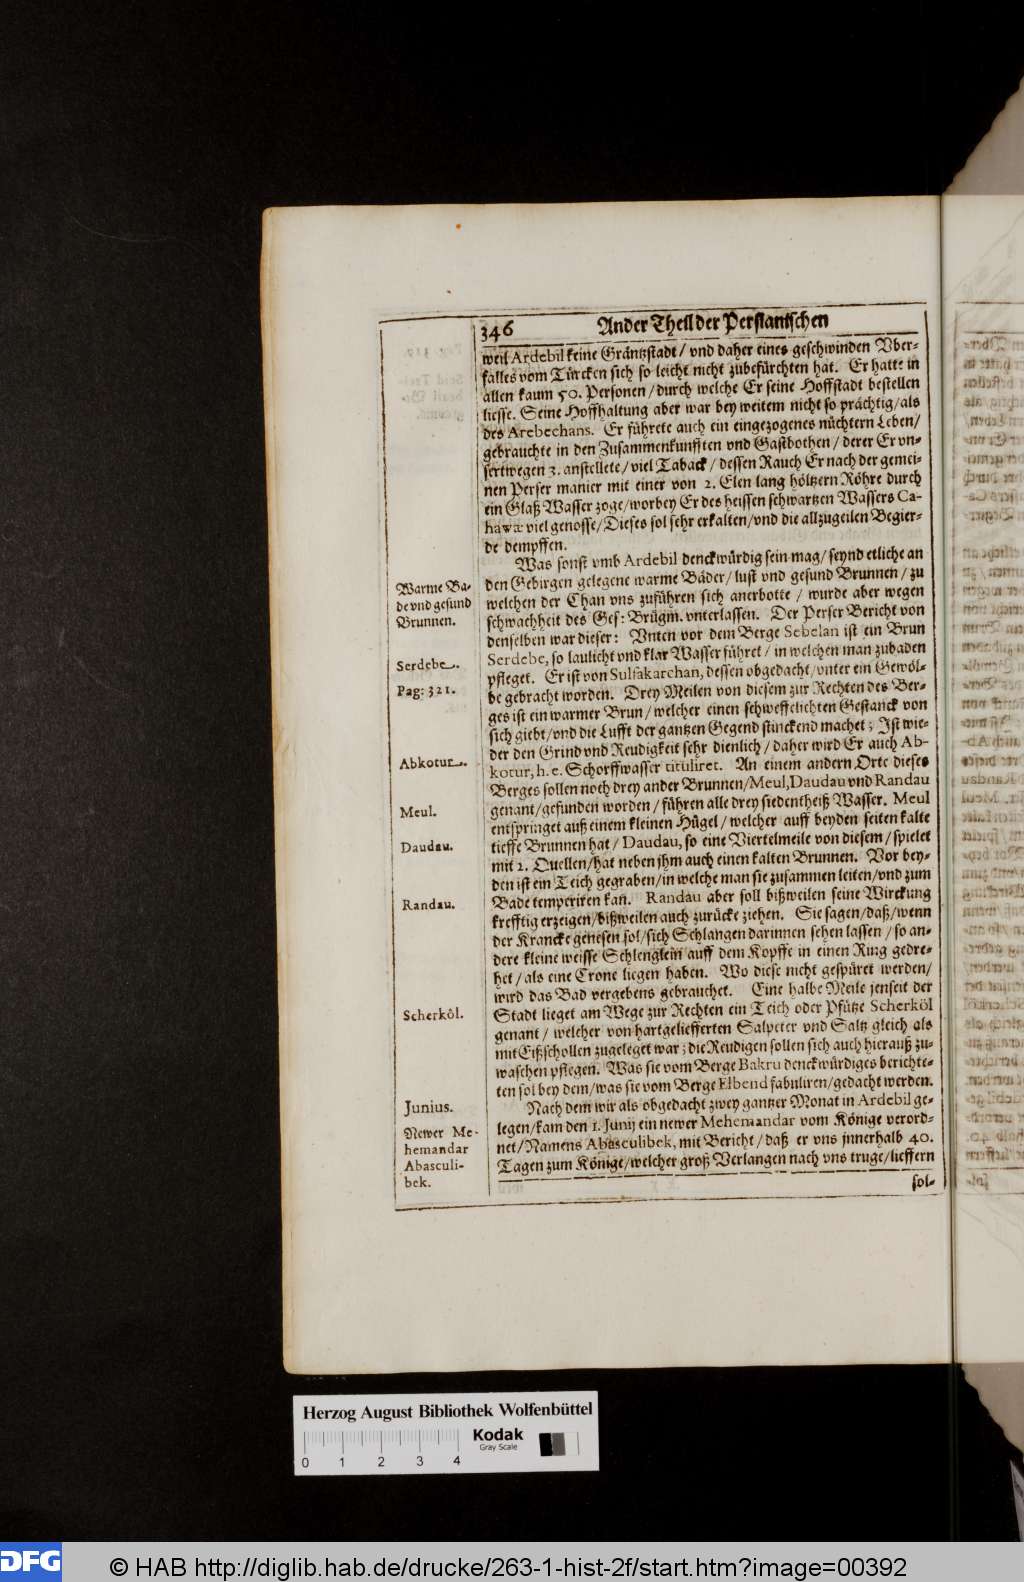 346 Ander Theil der Persianischen
weil Ardebil keine Gräntzstadt / vnd daher eines geschwinden Vber-
falles vom Türcken sich so leicht nicht zubefürchten hat. Er hatte in
allen kaum 50. Personen / durch welche Er seine Hoffstadt bestellen
liesse. Seine Hoffhaltung aber war bey weitem nicht so prächtig / als
des Arebechans. Er führete auch ein eingezogenes nüchtern Leben /
gebrauchte in den Zusammenkunfften vnd Gastbothen / derer Er vn-
sertwegen 3. anstellete / viel Taback / dessen Rauch Er nach der gemei-
nen Perser manier mit einer von 2. Elen lang höltzern Röhre durch
ein Glaß Wasser zoge / worbey Er des heissen schwartzen Wassers Ca-
hawæ viel genosse / Dieses sol sehr erkalten / vnd die allzugeilen Begier-
de dempffen.
Was sonst vmb Ardebil denckwürdig sein mag / seynd etliche an
den Gebirgen gelegene warme Bäder / lust vnd gesund Brunnen / zu
welchen der Chan vns zuführen sich anerbotte / wurde aber wegen
schwachheit des Ges: Brügm. vnterlassen. Der Perser Bericht von
denselben war dieser: Vnten vor dem Berge Sebelan ist ein Brun
Serdebe, so laulicht vnd klar Wasser führet / in welchen man zubaden
pfleget. Er ist von Sulfakarchan, dessen obgedacht / vnter ein Gewöl-
be gebracht worden. Drey Meilen von diesem zur Rechten des Ber-
ges ist ein warmer Brun / welcher einen schweffelichten Gestanck von
sich giebt / vnd die Lufft der gantzen Gegend stinckend machet; Ist wie-
der den Grind vnd Reudigkeit sehr dienlich / daher wird Er auch Ab-
kotur, h. e. Schorffwasser tituliret. An einem andern Orte dieses
Berges sollen noch drey ander Brunnen / Meul, Daudau vnd Randau
genant / gefunden worden / führen alle drey siedentheiß Wasser. Meul
entspringet auß einem kleinen Hügel / welcher auff beyden seiten kalte
tieffe Brunnen hat / Daudau, so eine Viertelmeile von diesem / spielet
mit 2. Quellen / hat neben jhm auch einen kalten Brunnen. Vor bey-
den ist ein Teich gegraben / in welche man sie zusammen leiten / vnd zum
Bade temperiren kan. Randau aber soll bißweilen seine Wirckung
krefftig erzeigen / bißweilen auch zurücke ziehen. Sie sagen / daß / wenn
der Krancke genesen sol / sich Schlangen darinnen sehen lassen / so an-
dere kleine weisse Schlenglein auff dem Kopffe in einen Ring gedre-
het / als eine Crone liegen haben. Wo diese nicht gespüret werden /
wird das Bad vergebens gebrauchet. Eine halbe Meile jenseit der
Stadt lieget am Wege zur Rechten ein Teich oder Pfütze Scherköl
genant / welcher von hartgelieferten Salpeter vnd Saltz gleich als
mit Eißschollen zugeleget war; die Reudigen sollen sich auch hierauß zu-
waschen pflegen. Was sie vom Berge Bakru denckwürdiges berichte-
ten sol bey dem / was sie vom Berge Elbend fabuliren / gedacht werden.
Nach dem wir als obgedacht zwey gantzer Monat in Ardebil ge-
legen / kam den 1. Junij ein newer Mehemandar vom Könige verord-
net / Namens Abasculibek, mit Bericht / daß er vns jnnerhalb 40.
Tagen zum Könige / welcher groß Verlangen nach vns truge / lieffern
sol-
Warme Bä-
de vnd gesund
Brunnen.
Serdebe.
Pag: 321.
Abkotur.
Meul.
Daudau.
Randau.
Scherköl.
Junius.
Newer Me-
hemandar
Abasculi-
bek.
Herzog August Bibliothek Wolfenbüttel
Kodak
Gray Scale
0 1 2 3 4
DFG © HAB http://diglib.hab.de/drucke/263-1-hist-2f/start.htm?image=00392